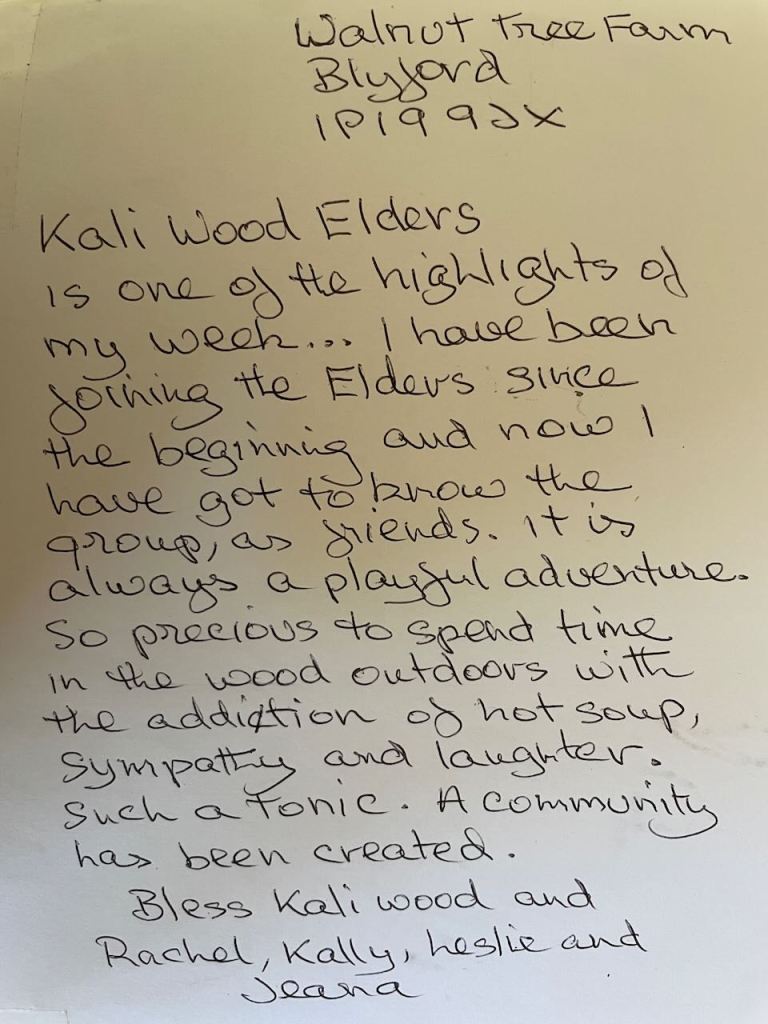 Walnut Tree Farm
Blyford
IP19 9JX
Kali Wood Elders
is one of the highlights of
my week... I have been
joining the Elders since
the beginning and now I
have got to know the
group, as friends. It is
always a playful adventure.
So precious to spend time
in the wood outdoors with
the addiction of hot soup,
sympathy and laughter.
Such a tonic. A community
has been created.
Bless Kali wood and
Rachel, Kally, Leslie and
Jeana